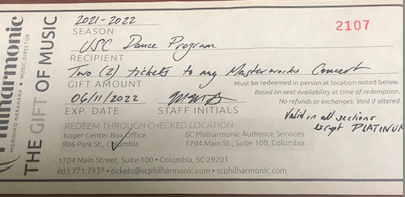 Philharmonic
MORIHIKO NAKAHARA • MUSIC DIRECTOR
THE GIFT OF MUSIC
2021-2022
SEASON
2107
USC Dance Program
RECIPIENT
Two (2) tickets to any Masterworks Concert
GIFT AMOUNT
Must be redeemed in person at location noted below.
Based on seat availability at time of redemption.
No refunds or exchanges. Void if altered.
06/11/2022
EXP. DATE
STAFF INITIALS
Valid in all sections
except PLATINUM
REDEEM THROUGH CHECKED LOCATION
Koger Center Box Office
806 Park St., Columbia
SC Philharmonic Audience Services
1704 Main St., Suite 100, Columbia
1704 Main Street, Suite 100 • Columbia, SC 29201
803.771.7937 • tickets@scphilharmonic.com • scphilharmonic.com